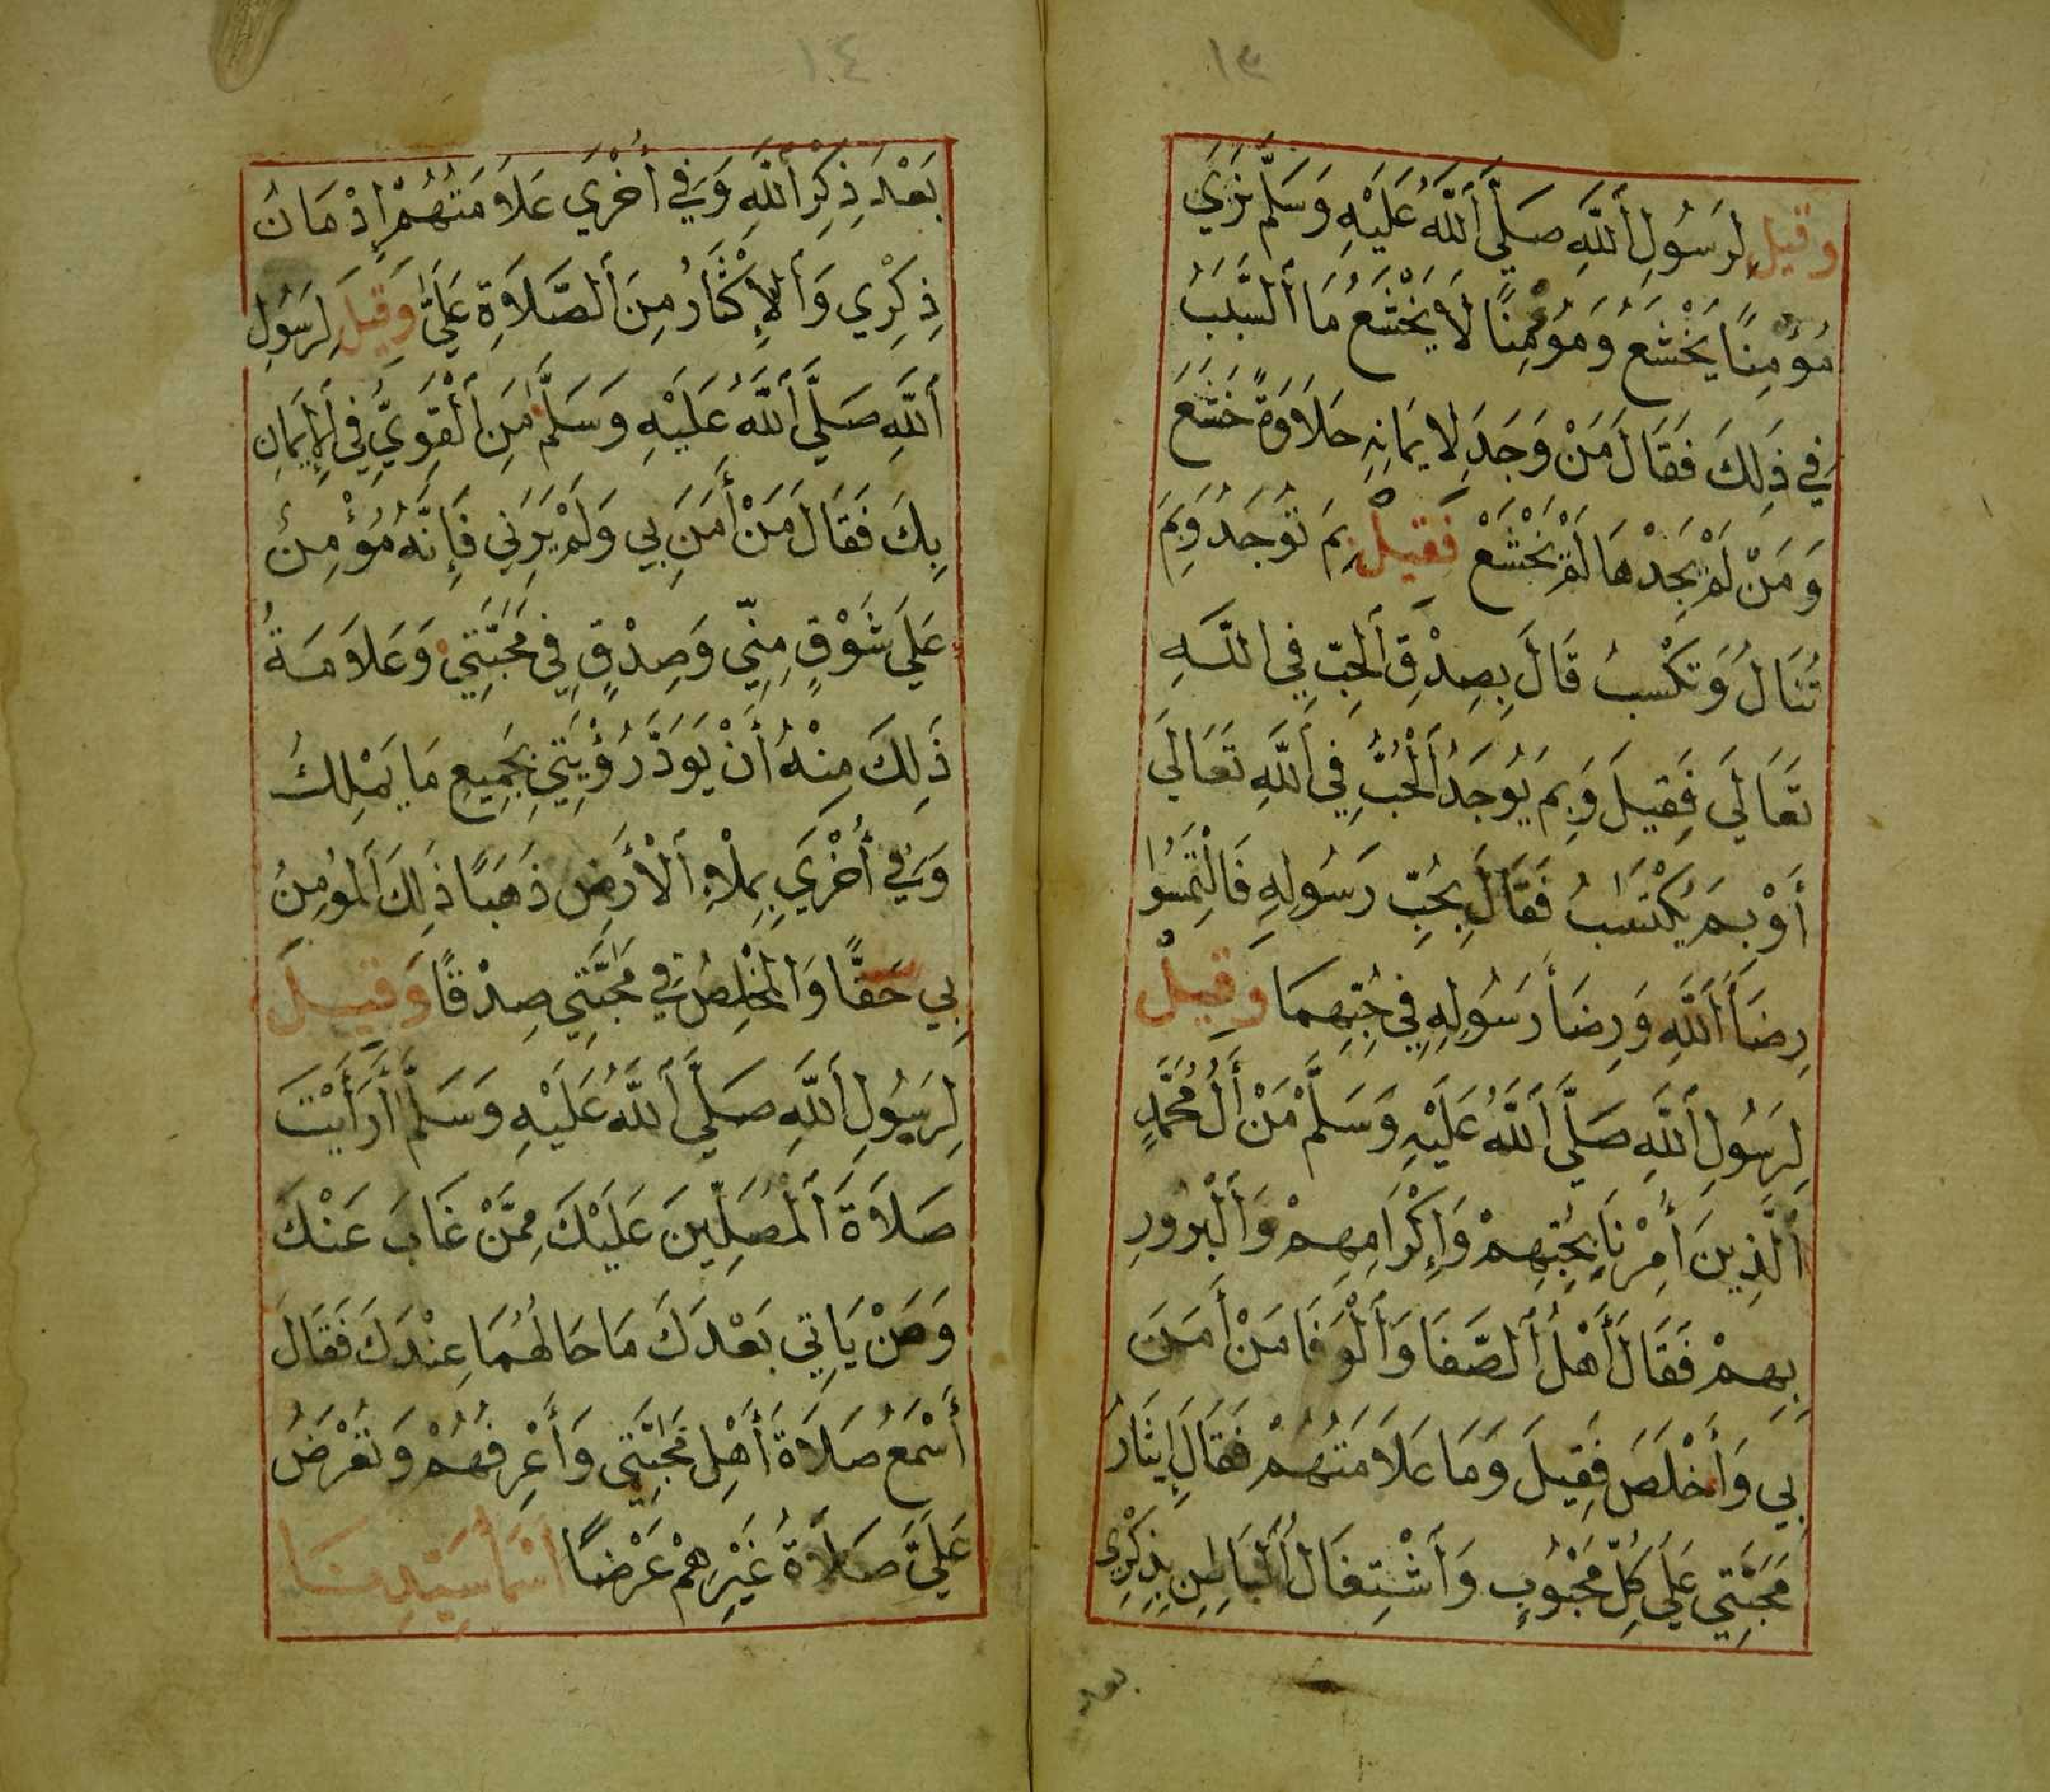 ١٣
وَقِيلَ لِرَسُولِ اللَّهِ صَلَّي اللَّهُ عَلَيْهِ وَسَلَّمَ نَرَي
مُؤْمِنًا يَخْشَعُ وَمُؤْمِنًا لَا يَخْشَعُ مَا السَّبَبُ
فِي ذَلِكَ فَقَالَ مَنْ وَجَدَ لِايمَانِهِ حَلَاوَةً خَشَعَ
وَمَنْ لَمْ يَجِدْهَا لَمْ يَخْشَعْ فَقِيلَ بِمَ تُوجَدُ وَبِمَ
تُنَالُ وَتُكْسَبُ قَالَ بِصِدْقِ الْحُبِّ فِي اللَّهِ
تَعَالَي فَقِيلَ وَبِمَ يُوجَدُ الْحُبُّ فِي اللَّهِ تَعَالَي
أَوْ بِمَ يُكْتَسَبُ فَقَالَ بِحُبِّ رَسُولِهِ فَالْتَمِسُوا
رِضَأَ اللَّهِ وَرِضَأَ رَسُولِهِ فِي حُبِّهِمَا وَقِيلَ
لِرَسُولِ اللَّهِ صَلَّي اللَّهُ عَلَيْهِ وَسَلَّمَ مَنْ أَلُ مُحَمَّدٍ
الَّذِينَ أُمِرْنَا بِحُبِّهِمْ وَإِكْرَامِهِمْ وَالْبُرُورِ
بِهِمْ فَقَالَ أَهْلُ الصَّفَا وَالْوَفَا مَنْ أَمَنَ
بِي وَأَخْلَصَ فَقِيلَ وَمَا عَلَامَتُهُمْ فَقَالَ إِيثَارُ
مَحَبَّتِي عَلَي كُلِّ مَحْبُوبٍ وَأشْتِغَالُ الْبَاطِنِ بِذِكْرِي
بعد
١٤
بَعْدَ ذِكْرِ اللَّهِ وَفِي أُخْرَي عَلَامَتُهُمْ إِدْمَانُ
ذِكْرِي وَالْإِكْثَارُ مِنَ الصَّلَاةِ عَلَيَّ وَقِيلَ لِرَسُولِ
اللَّهِ صَلَّي اللَّهُ عَلَيْهِ وَسَلَّمَ مَنِ الْقَوِيُّ فِي الْإِيمَانِ
بِكَ فَقَالَ مَنْ أَمَنَ بِي وَلَمْ يَرَنِي فَإِنَّهُ مُؤْمِنٌ
عَلَي شَوْقٍ مِنِّي وَصِدْقٍ فِي مَحَبَّتِي وَعَلَامَةُ
ذَلِكَ مِنْهُ أَنْ يَوَدَّ رُؤْيَتِي بِجَمِيعِ مَا يَمْلِكُ
وَفِي أُخْرَي بِمِلْءِ الْأَرْضِ ذَهَبًا ذَلِكَ الْمُومِنُ
بِي حَقًّا وَالْمُخْلِصُ فِي مَحَبَّتِي صِدْقًا وَقِيلَ
لِرَسُولِ اللَّهِ صَلَّي اللَّهُ عَلَيْهِ وَسَلَّمَ أَرَأَيْتَ
صَلَاةَ الْمُصَلِّينَ عَلَيْكَ مِمَّنْ غَابَ عَنْكَ
وَمَنْ يَاتِي بَعْدَكَ مَا حَالُهُمَا عِنْدَكَ فَقَالَ
أَسْمَعُ صَلَاةَ أَهْلِ مَحَبَّتِي وَأَعْرِفُهُمْ وَتُعْرَضُ
عَلَيَّ صَلَاةُ غَيْرِهِمْ عَرْضًا أَسْمَأُ سَيِّدِنَا